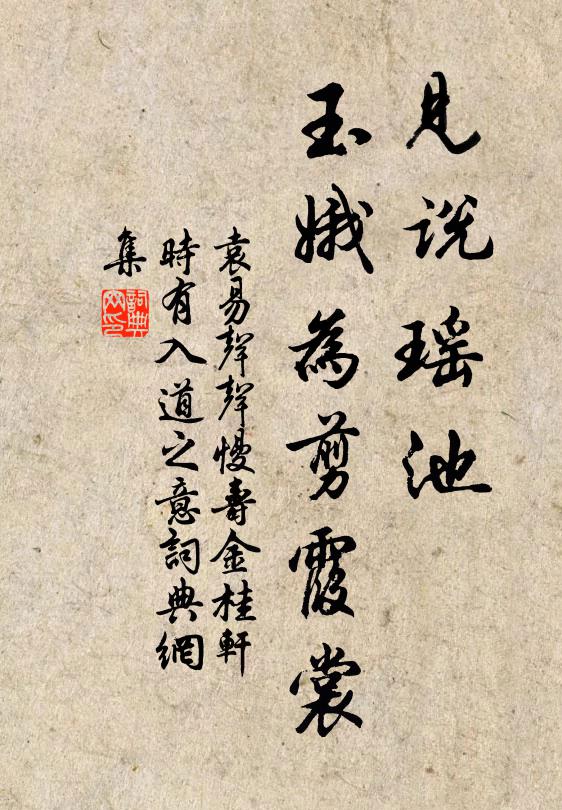 見說瑤池
玉娥為剪霞裳
袁易聲聲慢壽金桂軒
時有入道之意詞典網
集
詞典
网印